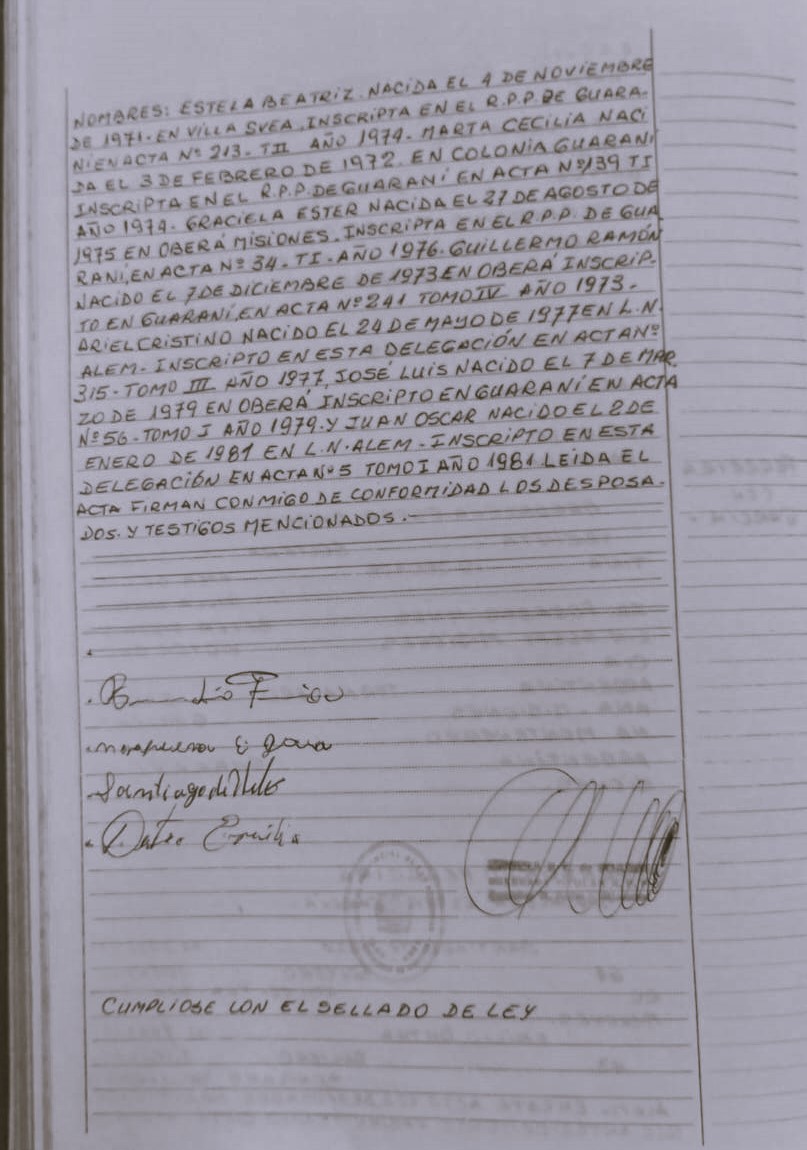 NOMBRES: ESTELA BEATRIZ. NACIDA EL 4 DE NOVIEMBRE
DE 1971. EN VILLA SVEA, INSCRIPTA EN EL R.P.P. DE GUARA-
NÍ EN ACTA Nº 213. TII AÑO 1974. MARTA CECILIA NACI
DA EL 3 DE FEBRERO DE 1972. EN COLONIA GUARANI
INSCRIPTA EN EL R.P.P. DE GUARANÍ EN ACTA Nº 139 TI
AÑO 1974. GRACIELA ESTER NACIDA EL 27 DE AGOSTO DE
1975 EN OBERÁ MISIONES. INSCRIPTA EN EL R.P.P. DE GUA
RANÍ, EN ACTA Nº 34. TI. AÑO 1976. GUILLERMO RAMÓN
NACIDO EL 7 DE DICIEMBRE DE 1973 EN OBERÁ INSCRIP-
TO EN GUARANÍ, EN ACTA Nº 241 TOMO IV AÑO 1973.
ARIEL CRISTINO NACIDO EL 24 DE MAYO DE 1977 EN L.N.
ALEM. INSCRIPTO EN ESTA DELEGACIÓN EN ACTA Nº
315. TOMO III AÑO 1977, JOSÉ LUIS NACIDO EL 7 DE MAR
ZO DE 1979 EN OBERÁ INSCRIPTO EN GUARANÍ EN ACTA
Nº 56. TOMO I AÑO 1979. Y JUAN OSCAR NACIDO EL 2 DE
ENERO DE 1981 EN L.N. ALEM. INSCRIPTO EN ESTA
DELEGACIÓN EN ACTA Nº 5 TOMO I AÑO 1981 LEIDA EL
ACTA FIRMAN CONMIGO DE CONFORMIDAD LOS DESPOSA-
DOS. Y TESTIGOS MENCIONADOS.
Santiago de
CUMPLIOSE CON EL SELLADO DE LEY